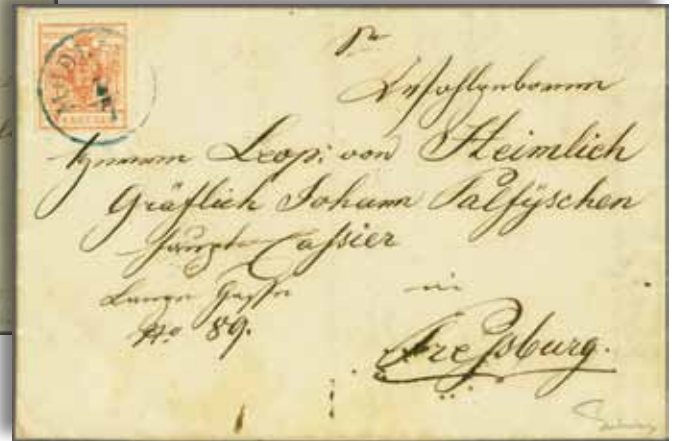 Sr
Wohlgeboren
Herrn Leop: von Heimlich
Gräflich Johann Palfÿschen
Haupt Cassier
Lange Gasse in
No 89.
Preßburg.